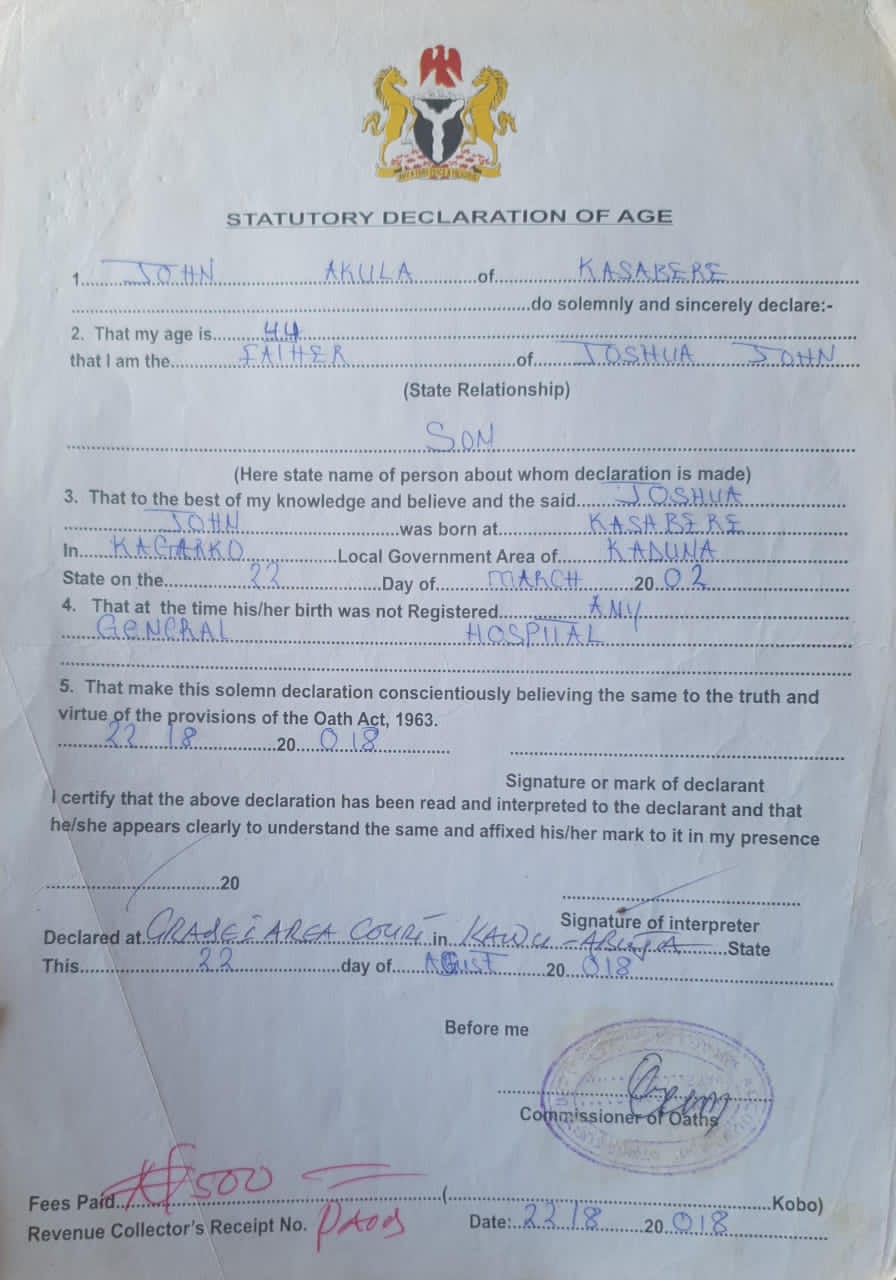 STATUTORY DECLARATION OF AGE
1. JOHN AKULA of KASABERE
do solemnly and sincerely declare:-
2. That my age is 44
that I am the FATHER of JOSHUA JOHN
(State Relationship)
SON
(Here state name of person about whom declaration is made)
3. That to the best of my knowledge and believe and the said JOSHUA
JOHN was born at KASABERE
In KAGARKO Local Government Area of KADUNA
State on the 22 Day of MARCH 20 02
4. That at the time his/her birth was not Registered ANY
GENERAL HOSPITAL
5. That make this solemn declaration conscientiously believing the same to the truth and
virtue of the provisions of the Oath Act, 1963.
22 18 20 018
Signature or mark of declarant
I certify that the above declaration has been read and interpreted to the declarant and that
he/she appears clearly to understand the same and affixed his/her mark to it in my presence
20
Signature of interpreter
Declared at GRADE I AREA COURT in KAWU - ABUJA State
This 22 day of AGUST 20 018
Before me
Commissioner of Oaths
Fees Paid ₦500 ( Kobo)
Revenue Collector's Receipt No.
Date: 22 18 20 018